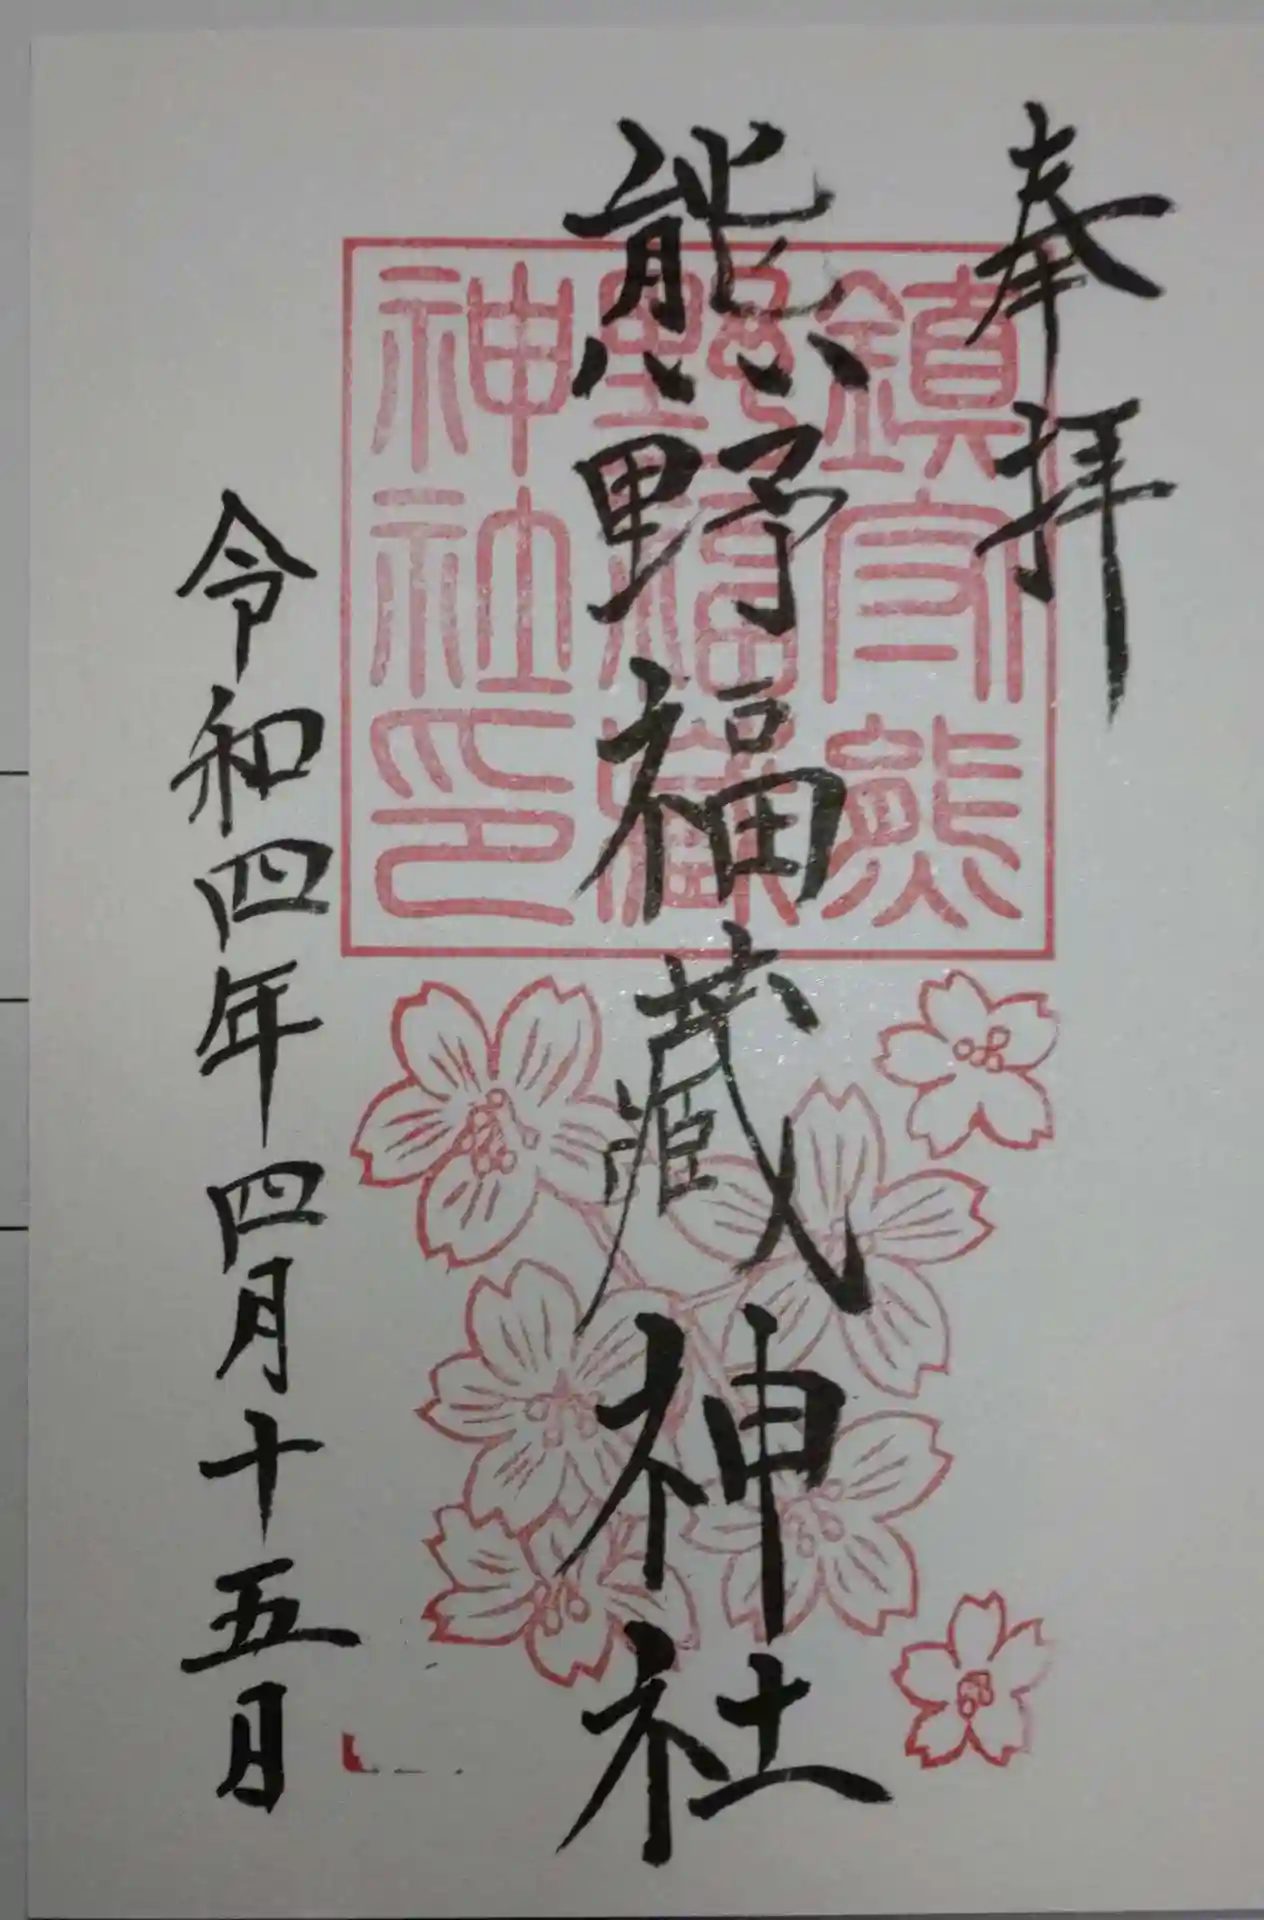 奉拝
熊野福蔵神社
令和四年四月十五日
鎮守熊
野福蔵
神社印